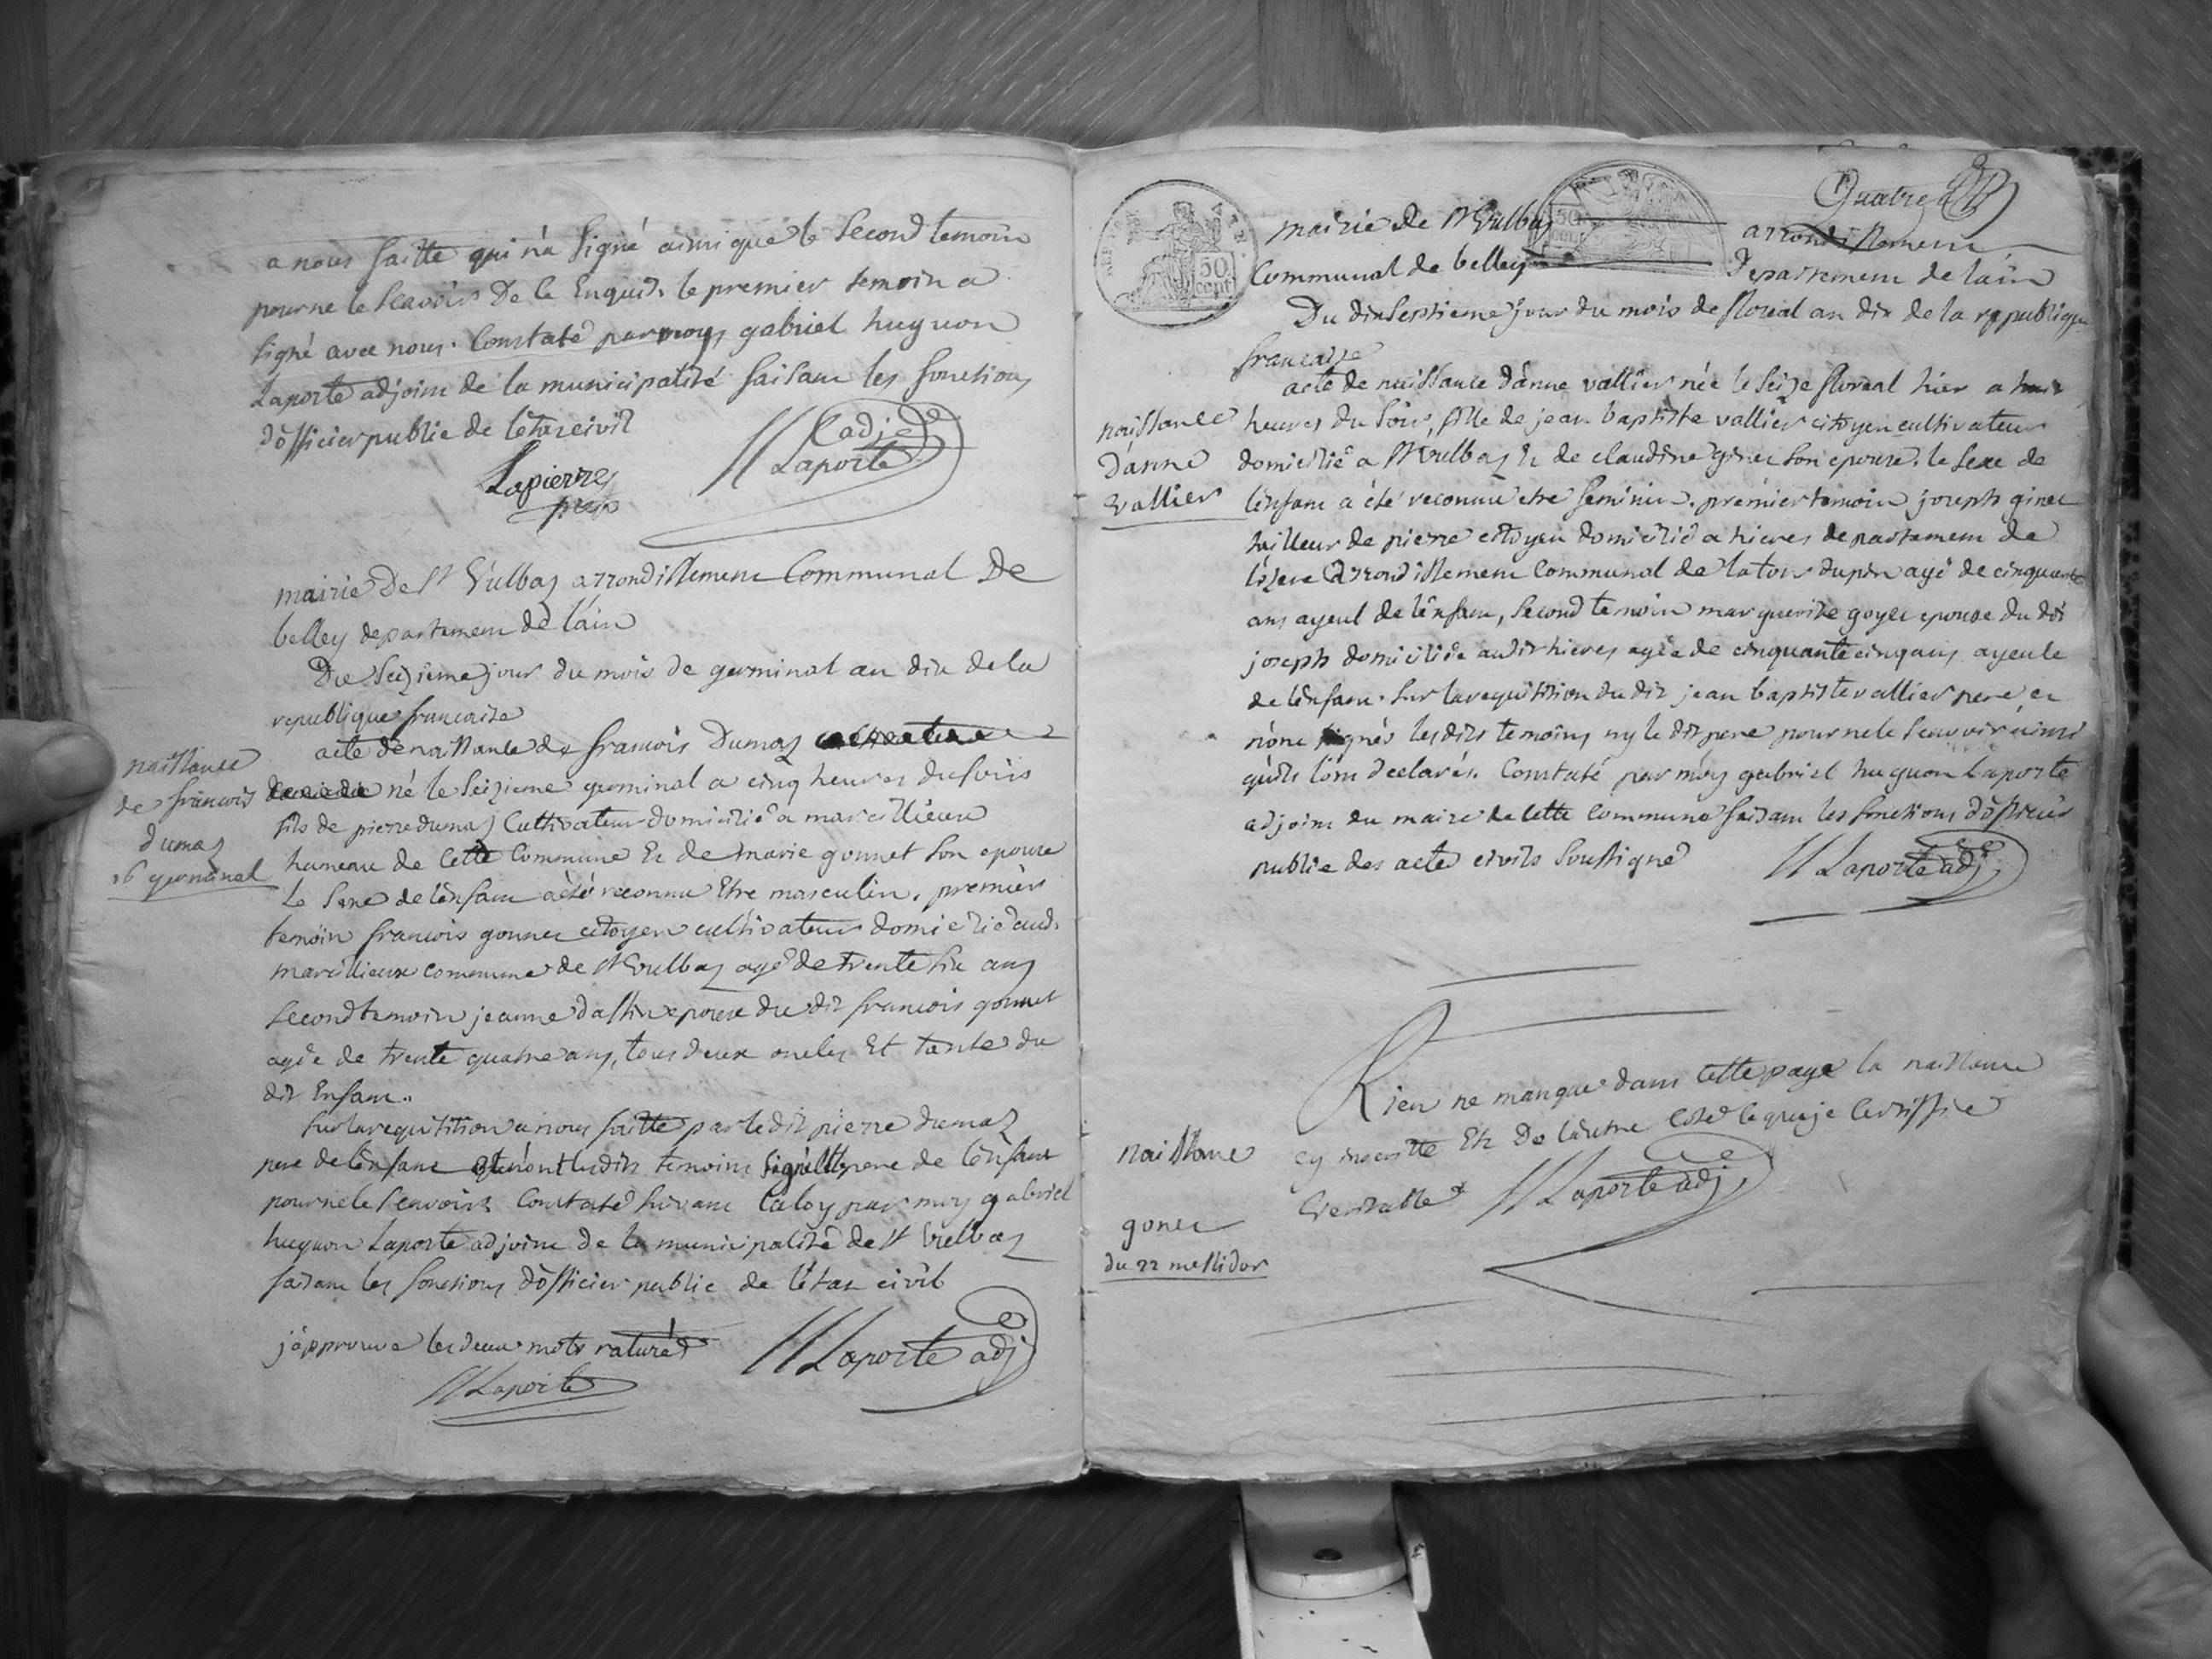 a nous faitte qui n'a signé ainsi que le second temoin
pour ne le scavoir de ce enquis. le premier temoin a
signé avec nous. Constaté par moy gabriel huguon
Laporte adjoint de la municipalité faisant les fonctions
d'officier public de l'etat civil
Lapierre
Laporte adj
mairie De St Vulbas arrondissement Communal De
belley departement de l'ain
Du Seizieme jour du mois de germinal an dix de la
republique francaise
naissance
de francois
dumas
16 germinal
acte de naissance de francois Dumas
né le Seizieme germinal a cinq heures du soir
fils de pierre dumas Cultivateur domicilié a marcillieux
hameau de Cette Commune Et de marie gonnet son epouse
le sexe de l'enfant a été reconnu Etre masculin. premier
temoin francois gonnet citoyen cultivateur domicilié aud.
marcillieux commune de St Vulbas agé de trente six ans
second temoin jeanne dassin epouse du dit francois gonnet
agée de trente quatre ans, tous deux oncles Et tante du
dit Enfant.
sur la requisition a nous faitte par le dit pierre dumas
pere de l'enfant et n'ont lesdits temoins signé le pere de l'enfant
pour ne le scavoir Constaté suivant la loy par moy gabriel
huguon Laporte adjoint de la municipalité de St Vulbas
faisant les fonctions d'officier public de l'etat civil
j'approuve les deux mots raturés
Laporte adj
Laporte
Quatre
mairie de St Vulbas arrondissement
Communal de belley departement de l'ain
Du dixseptieme jour du mois de floreal an dix de la republique
francaise
naissance
d'anne
vallier
acte de naissance d'anne vallier née le seize floreal hier a huit
heures du soir, fille de jean baptiste vallier citoyen cultivateur
domicilié a St Vulbas Et de claudine ginet son epouse. le sexe de
l'enfant a été reconnu etre feminin. premier temoin joseph ginet
tailleur de pierre citoyen domicilié a hieres departement de
l'isere arrondissement Communal de la tour dupin agé de cinquante
ans ayeul de l'enfant, second temoin marguerite goyet epouse du dit
joseph domiciliée audit hieres agée de cinquante cinq ans ayeule
de l'enfant. sur la requisition du dit jean baptiste vallier pere et
n'ont signés les dits temoins ny le dit pere pour ne le scavoir ainsi
qu'ils l'ont declarés. Constaté par moy gabriel huguon Laporte
adjoint du maire de cette commune faisant les fonctions d'officier
public des acte civils soussigné
Laporte adj
Rien ne manque dans cette page la naissance
cy inscritte Et de l'autre coté ce que je certiffie
veritable Laporte adj
naissance
gonet
du 22 messidor
50
cent